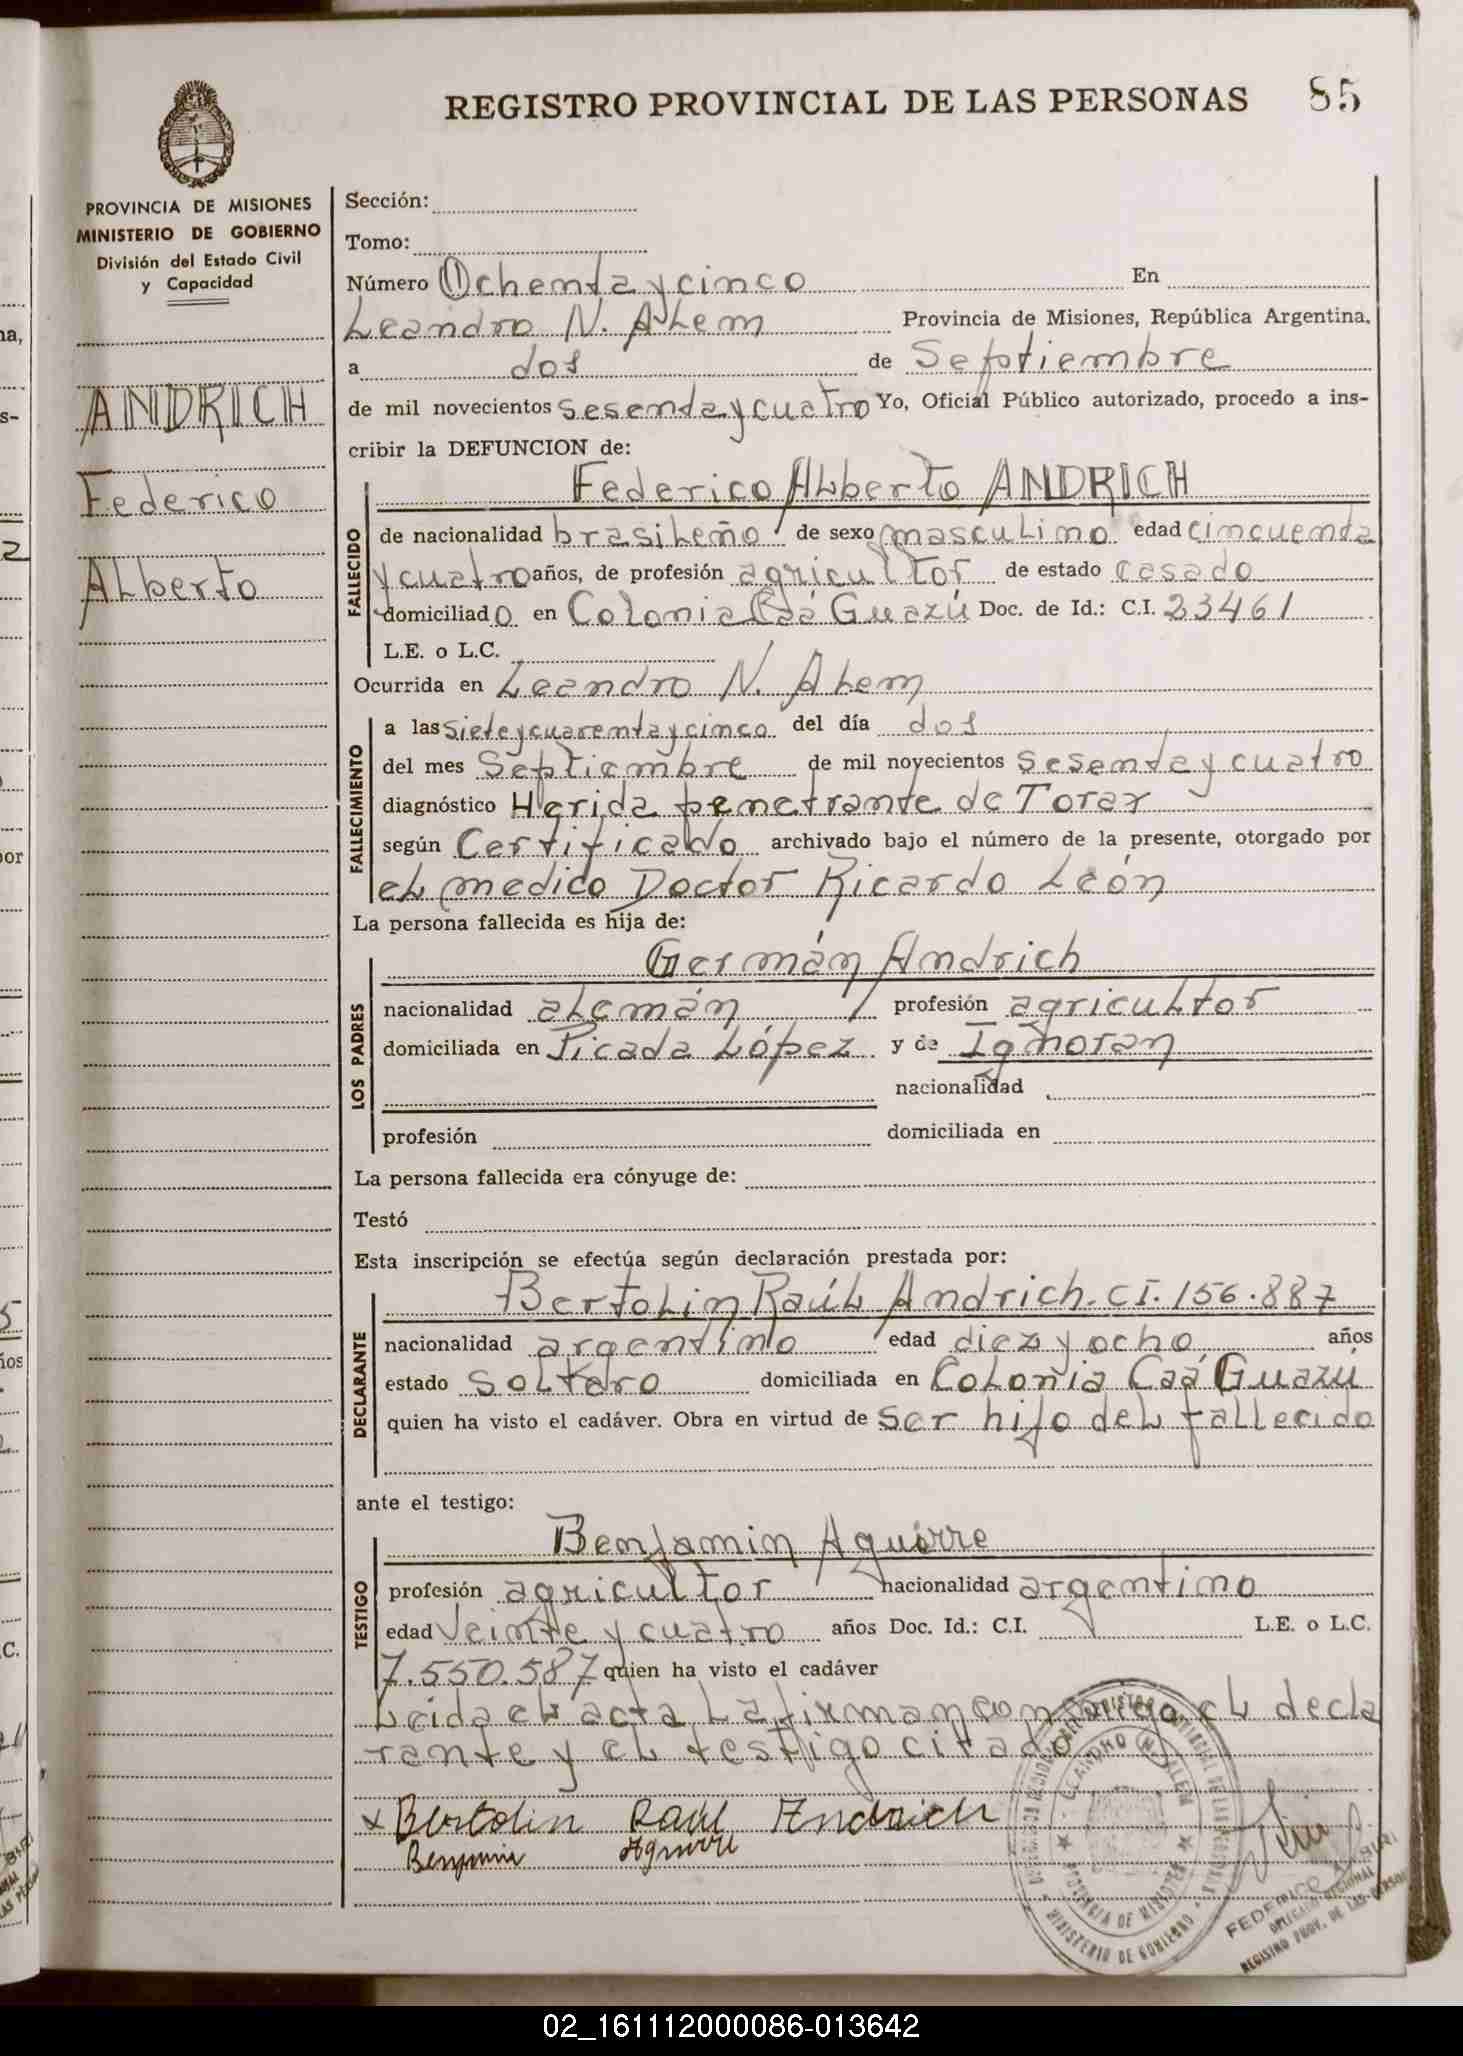 REGISTRO PROVINCIAL DE LAS PERSONAS 85
PROVINCIA DE MISIONES
MINISTERIO DE GOBIERNO
División del Estado Civil
y Capacidad
ANDRICH
Federico
Alberto
Sección:
Tomo:
Número Ochenta y cinco En
Leandro N. Alem Provincia de Misiones, República Argentina,
a dos de Septiembre
de mil novecientos sesenta y cuatro Yo, Oficial Público autorizado, procedo a ins-
cribir la DEFUNCION de:
Federico Alberto ANDRICH
FALLECIDO
de nacionalidad brasileño de sexo masculino edad cincuenta
y cuatro años, de profesión agricultor de estado casado
domiciliado en Colonia Caá Guazú Doc. de Id.: C.I. 23461
L.E. o L.C.
Ocurrida en Leandro N. Alem
FALLECIMIENTO
a las siete y cuarenta y cinco del día dos
del mes Septiembre de mil novecientos sesenta y cuatro
diagnóstico Herida penetrante de Torax
según Certificado archivado bajo el número de la presente, otorgado por
el medico Doctor Ricardo León
La persona fallecida es hija de:
Germán Andrich
LOS PADRES
nacionalidad alemán profesión agricultor
domiciliada en Picada López y de Ignoran
nacionalidad
profesión domiciliada en
La persona fallecida era cónyuge de:
Testó
Esta inscripción se efectúa según declaración prestada por:
Bertolin Raúl Andrich. CI. 156.887
DECLARANTE
nacionalidad argentino edad diez y ocho años
estado soltero domiciliada en Colonia Caá Guazú
quien ha visto el cadáver. Obra en virtud de ser hijo del fallecido
ante el testigo:
Benjamin Aguirre
TESTIGO
profesión agricultor nacionalidad argentino
edad veinte y cuatro años Doc. Id.: C.I. L.E. o L.C.
7.550.587 quien ha visto el cadáver
Leida el acta, la firman conmigo el decla
rante y el testigo citado
x Bertolin Raul Andrich
Benjamin Aguirre
LEANDRO N. ALEM
PROVINCIA DE MISIONES
MINISTERIO DE GOBIERNO
FEDERICO
DELEGADO REGIONAL
REGISTRO PROV. DE LAS PERSO
02_161112000086-013642